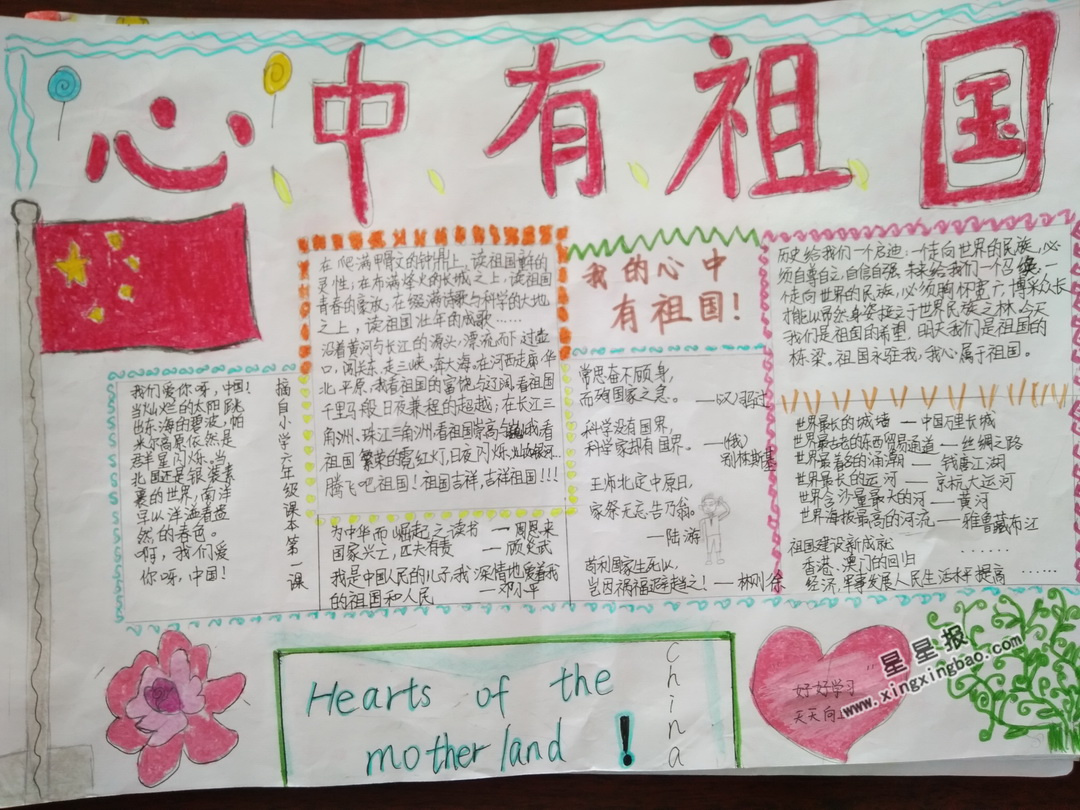 心中有祖国
我们爱你呀，中国！
当灿烂的太阳跳
出东海的碧波，帕
米尔高原依然是
群星闪烁，当
北国还是银装素
裹的世界，南洋
早以洋溢着盎
然的春色。
啊，我们爱
你呀，中国！
摘自小学六年级课本第一课
在爬满甲骨文的钟鼎上，读祖国童年的
灵性；在布满烽火的长城之上，读祖国
青春的豪放；在缀满诗歌与科学的大地
之上，读祖国壮年的成歌……
沿着黄河与长江的源头，漂流而下，过壶
口，闯关东，走三峡，奔大海。在河西走廊华
北平原，我看祖国的富饶与辽阔，看祖国
千里马般日夜兼程的超越；在长江三
角洲、珠江三角洲，看祖国崇高与，我看
祖国繁荣的霓虹灯，日夜闪烁，灿如银河。
腾飞吧祖国！祖国吉祥，吉祥祖国！！！
为中华而崛起之读书 一周恩来
国家兴亡，匹夫有责 — 顾炎武
我是中国人民的儿子，我深情地爱着我
的祖国和人民 —邓小平
我的心中
有祖国！
常思奋不顾身，
而殉国家之急。 —(汉)司马迁
科学没有国界，
科学家却有国界。 —(俄)
别林斯基
王师北定中原日，
家祭无忘告乃翁。
—陆游
苟利国家生死以，
岂因祸福避趋之！—林则徐
历史给我们一个启迪：一个走向世界的民族，必
须自尊自立，自信自强，未来给我们一个召唤，一
个走向世界的民族，必须胸怀宽广，博采众长
才能以昂然身姿挺立于世界民族之林。今天
我们是祖国的希望，明天我们是祖国的
栋梁。祖国永驻我，我心属于祖国。
世界最长的城墙 —中国万里长城
世界最古老的东西贸易通道—丝绸之路
世界最着名的涌潮 — 钱唐江湖
世界最长的运河 — 京杭大运河
世界含沙量最大的河 — 黄河
世界海拔最高的河流 —雅鲁藏布江
祖国建设新成就 ……
香港、澳门的回归
经济，军事发展人民生活水平提高 ……
Hearts of the
mother land ！
China
好好学习
天天向上
星星报
www.xingxingbao.com